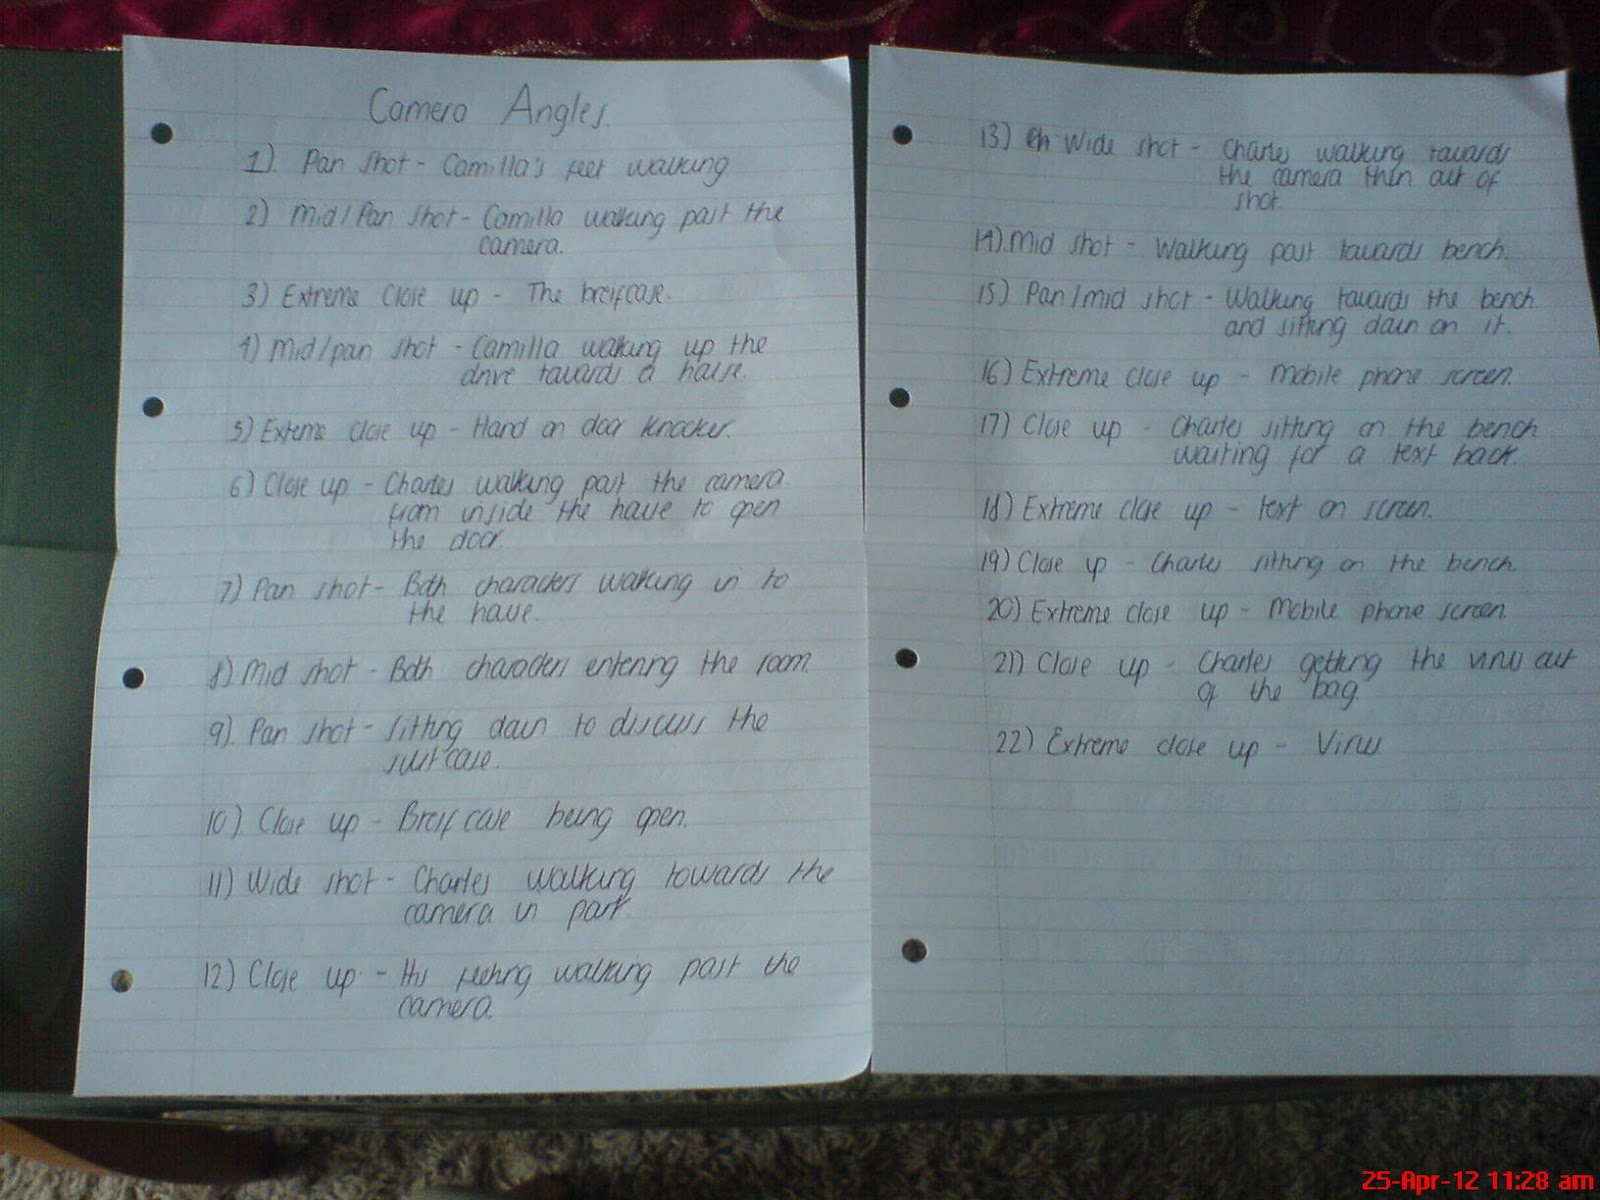 Camera Angles.
1). Pan Shot - Camilla's feet walking
2) Mid/Pan shot - Camilla walking past the
camera.
3) Extreme Close up - The breifcase.
4) Mid/pan shot - Camilla walking up the
drive towards a house.
5) Exteme close up - Hand on door knocker.
6) Close up - Charles walking past the camera.
from inside the house to open
the door.
7) Pan shot - Both characters walking in to
the house.
8) Mid shot - Both characters entering the room.
9). Pan shot - Sitting down to discuss the
suitcase.
10). Close up - Breifcase being open.
11) Wide shot - Charles walking towards the
camera in park.
12) Close up - His walking past the
camera.
13) Wide shot - Charles walking towards
the camera then out of
shot.
14). Mid shot - Walking past towards bench.
15) Pan/mid shot - Walking towards the bench
and sitting down on it.
16) Extreme close up - Mobile phone screen.
17) Close up - Charles sitting on the bench
waiting for a text back.
18) Extreme close up - text on screen.
19) Close up - Charles sitting on the bench.
20) Extreme close up - Mobile phone screen.
21) Close up - Charles getting the virus out
of the bag
22) Extreme close up - Virus
25-Apr-12 11:28 am